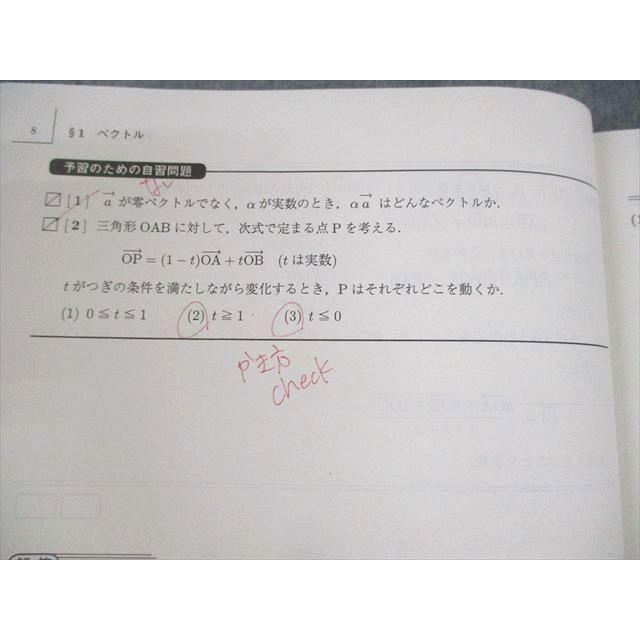 8 §1 ベクトル
予習のための自習問題
[1] $\vec{a}$ が零ベクトルでなく，αが実数のとき，α$\vec{a}$ はどんなベクトルか．
[2] 三角形 OAB に対して，次式で定まる点 P を考える．
$\overrightarrow{OP}$ = (1 − t)$\overrightarrow{OA}$ + t$\overrightarrow{OB}$ (t は実数)
t がつぎの条件を満たしながら変化するとき，P はそれぞれどこを動くか．
(1) 0 ≦ t ≦ 1 (2) t ≧ 1 (3) t ≦ 0
check